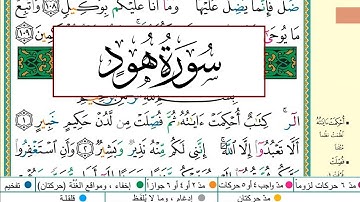 ضَلَّ فَإِنَّمَا يَضِلُّ عَلَيْهَا وَمَا أَنَا عَلَيْكُم بِوَكِيلٍ ١٠٨ وَاتَّبِعْ
مَا يُوحَىٰ
سُورَةُ هُودٍ
الٓر ۚ كِتَٰبٌ أُحْكِمَتْ ءَايَٰتُهُۥ ثُمَّ فُصِّلَتْ مِن لَّدُنْ حَكِيمٍ خَبِيرٍ ١
أَلَّا تَعْبُدُوٓا۟ إِلَّا ٱللَّهَ ۚ إِنَّنِى لَكُم مِّنْهُ نَذِيرٌ وَبَشِيرٌ ٢ وَأَنِ ٱسْتَغْفِرُوا۟
أُحْكِمَتْ ءَايَٰتُهُ
فُصِّلَتْ
مدّ ٦ حركات لزوماً مدّ ٢ أو ٤ أو ٦ جوازاً إخفاء، ومواقع الغُنَّة (حركتان) تفخيم
مدّ واجب ٤ أو ٥ حركات مدّ حركتان إدغام، وما لا يُلفظ قلقلة